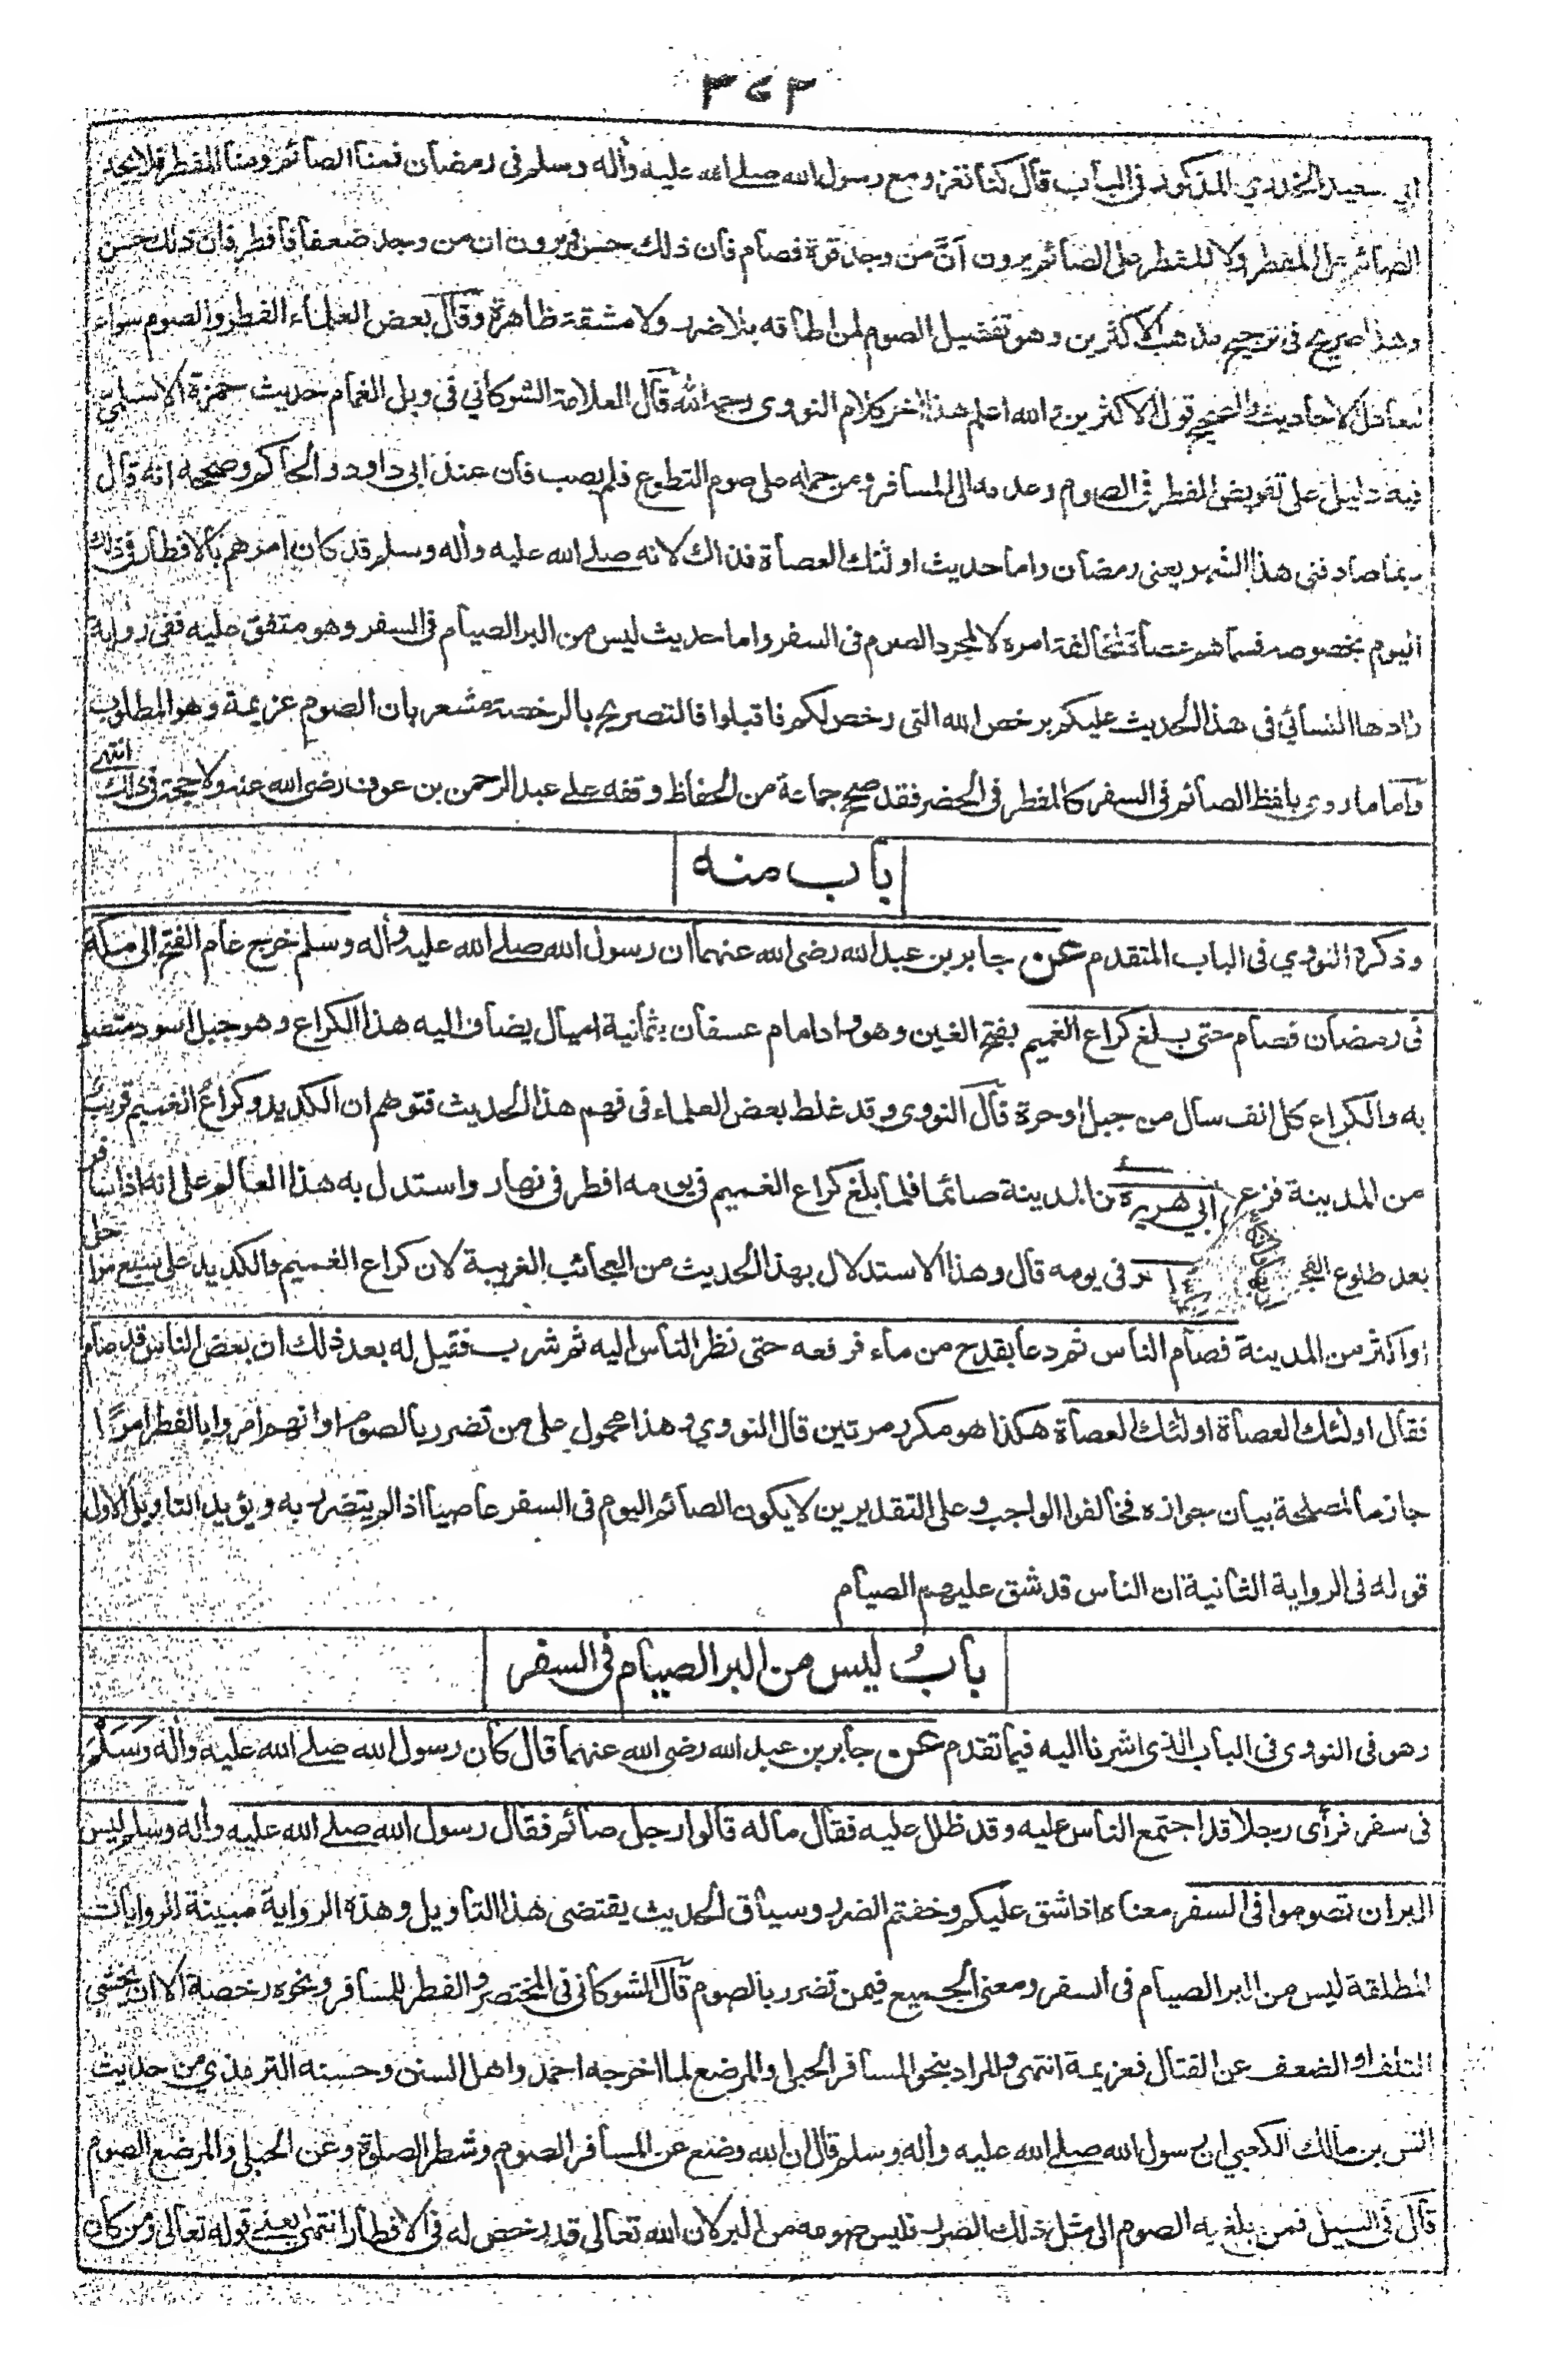 ٣٧٣
ابي سعيد الخدري المذكور في الباب قال كنا نغزو مع رسول الله صلى الله عليه وأله وسلم فى رمضان فمنا الصائم ومنا المفطر فلا يجد
الصائم على المفطر ولا المفطر على الصائم يرون أنَّ من وجد قوة فصام فان ذلك حسن ويرون ان من وجد ضعفا فافطر فان ذلك حسن
وهذا صريح فى ترجيح مذهب الاكثرين وهو تفضيل الصوم لمن اطاقه بلا ضرر ولا مشقة ظاهرة وقال بعض العلماء الفطر والصوم سواء
لتعادل الاحاديث والصحيح قول الاكثرين والله اعلم هذا اخر كلام النووى رحمه الله قال العلامة الشوكاني فى وبل الغمام حديث حمزة الاسلمي
فيه دليل على تفويض الفطر فى الصوم وعدمه الى المسافر ومن حمله على صوم التطوع فلم يصب فان عند ابى داود والحاكم وصححه انه قال
ربما صادفنى هذا الشهر يعنى رمضان واما حديث اولئك العصاة فذاك لانه صلى الله عليه وأله وسلم قد كان امرهم بالافطار فى ذلك
اليوم بخصوصه فسماهم عصاة لمخالفة امره لا لمجرد الصوم فى السفر واما حديث ليس من البر الصيام فى السفر وهو متفق عليه ففى رواية
زادها النسائي فى هذا الحديث عليكم برخص الله التى رخص لكم فاقبلوا فالتصريح بالرخصة مشعر بان الصوم عزيمة وهو المطلوب
واما ما روى بلفظ الصائم فى السفر كالمفطر فى الحضر فقد صحح جماعة من الحفاظ وقفه على عبد الرحمن بن عوف رضى الله عنه ولا حجة فى ذلك انتهى
باب منه
وذكره النووي فى الباب المتقدم عن جابر بن عبد الله رضى الله عنهما ان رسول الله صلى الله عليه وأله وسلم خرج عام الفتح الى مكة
فى رمضان فصام حتى بلغ كراع الغميم بفتح الغين وهو واد امام عسفان بثمانية اميال يضاف اليه هذا الكراع وهو جبل اسود متصل
به والكراع كل انف سال من جبل او حرة قال النووى وقد غلط بعض العلماء فى فهم هذا الحديث فتوهم ان الكديد وكراع الغميم قريب
من المدينة فزعم ابي هريرة من المدينة صائما فلما بلغ كراع الغميم فى يومه افطر فى نهار واستدل به هذا العالم على انه اذا سافر
بعد طلوع الفجر فى يومه قال وهذا الاستدلال بهذا الحديث من العجائب الغريبة لان كراع الغميم والكديد على سبع مراحل
او اكثر من المدينة فصام الناس ثم دعا بقدح من ماء فرفعه حتى نظر الناس اليه ثم شرب فقيل له بعد ذلك ان بعض الناس قد صام
فقال اولئك العصاة اولئك العصاة هكذا هو مكرر مرتين قال النووي وهذا محمول على من تضرر بالصوم او انهم امروا بالفطر امرًا
جازما لمصلحة بيان جوازه فخالفوا الواجب وعلى التقديرين لا يكون الصائم اليوم فى السفر عاصيا اذا لم يتضرر به ويؤيد التاويل الاول
قوله فى الرواية الثانية ان الناس قد شق عليهم الصيام
بابُ ليس من البر الصيام فى السفر
وهو فى النووى فى الباب الذى اشرنا اليه فيما تقدم عن جابر بن عبد الله رضى الله عنهما قال كان رسول الله صلى الله عليه وأله وسلم
فى سفر فرأى رجلا قد اجتمع الناس عليه وقد ظلل عليه فقال ماله قالوا رجل صائم فقال رسول الله صلى الله عليه وأله وسلم ليس
البر ان تصوموا فى السفر معناه اذا شق عليكم وخفتم الضرر وسياق الحديث يقتضى هذا التاويل وهذه الرواية مبينة للروايات
المطلقة ليس من البر الصيام فى السفر ومعنى الجميع فيمن تضرر بالصوم قال الشوكانى فى المختصر والفطر للمسافر ونحوه رخصة الا ان يخشى
التلف او الضعف عن القتال فعزيمة انتهى والمراد بنحو المسافر الحبلى والمرضع لما اخرجه احمد واهل السنن وحسنه الترمذي من حديث
انس بن مالك الكعبي ان رسول الله صلى الله عليه وأله وسلم قال ان الله وضع عن المسافر الصوم وشطر الصلوة وعن الحبلى والمرضع الصوم
قال فى السيل فمن بلغ به الصوم الى مثل ذلك الضرر فليس صومه من البر لان الله تعالى قد رخص له فى الافطار انتهى يعنى قوله تعالى ومن كان